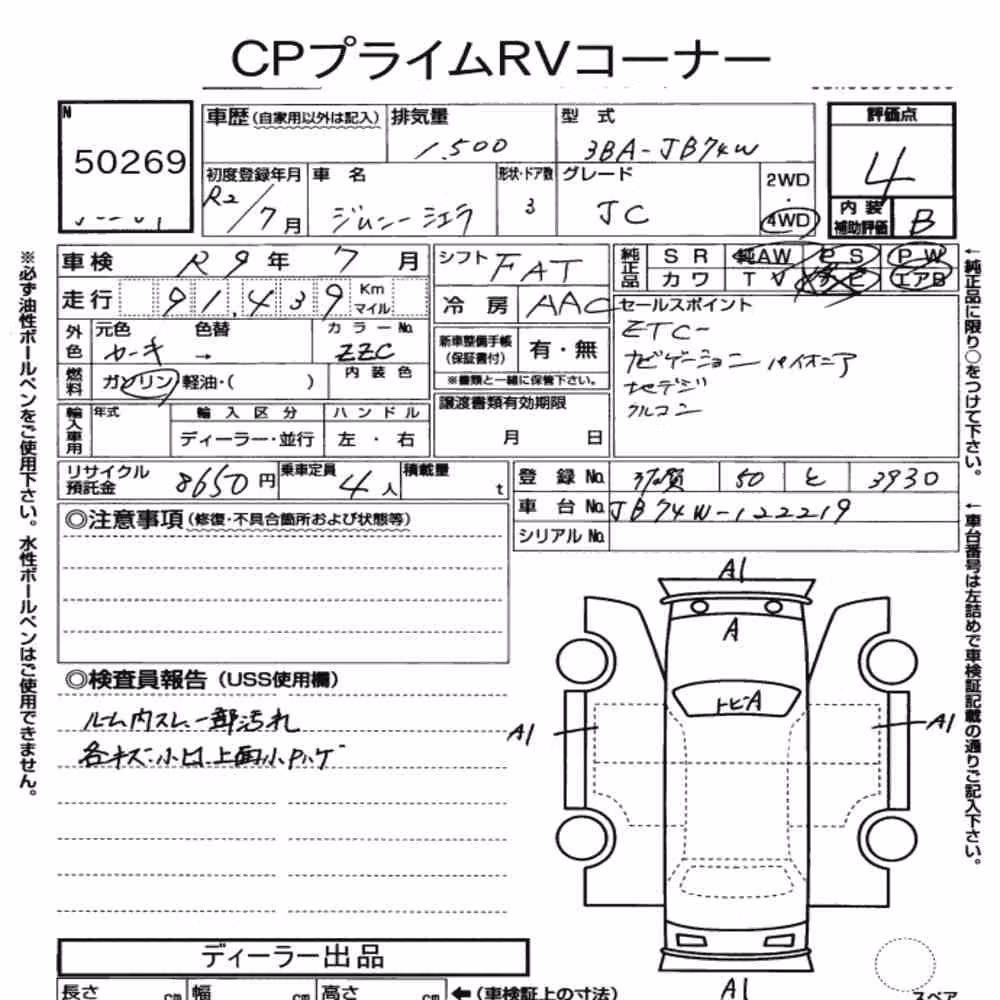 CPプライムRVコーナー
N
50269
車歴 (自家用以外は記入) 排気量 型式 評価点
1.500 3BA-JB74W 4
初度登録年月 車名 形状・ドア数 グレード 2WD・4WD
R2/7月 ジムニーシエラ 3 JC
内装補助評価 B
車検 R9年7月 シフト FAT 純正品 SR 純AW PS PW
カワ TV エアB
走行 91,439 Km マイル 冷房 AAC セールスポイント
外色 元色 色替 カラーNo. 新車整備手帳(保証書付) 有・無 ETC-
カーキ → ZZC ナビゲーション パイオニア
※書類と一緒に保管下さい。 地デジ
燃料 ガソリン・軽油・( ) 内装色 クルコン
輸入車用 年式 輸入区分 ハンドル 譲渡書類有効期限
ディーラー・並行 左・右 月 日
リサイクル預託金 8650円 乗車定員 4人 積載量 t 登録No. 50 と 3930
車台No. JB74W-122219
シリアルNo.
◎注意事項(修復・不具合箇所および状態等)
◎検査員報告(USS使用欄)
ルーム内スレ、一部汚れ
各キズ・小凹、上面小Pハゲ
A1
A
トビA
A1
A1
A1
ディーラー出品
長さ cm 幅 cm 高さ cm ←(車検証上の寸法)
スペア
※必ず油性ボールペンをご使用下さい。水性ボールペンはご使用できません。
←純正品に限り○をつけて下さい。
←車台番号は左詰めで車検証記載の通りご記入下さい。